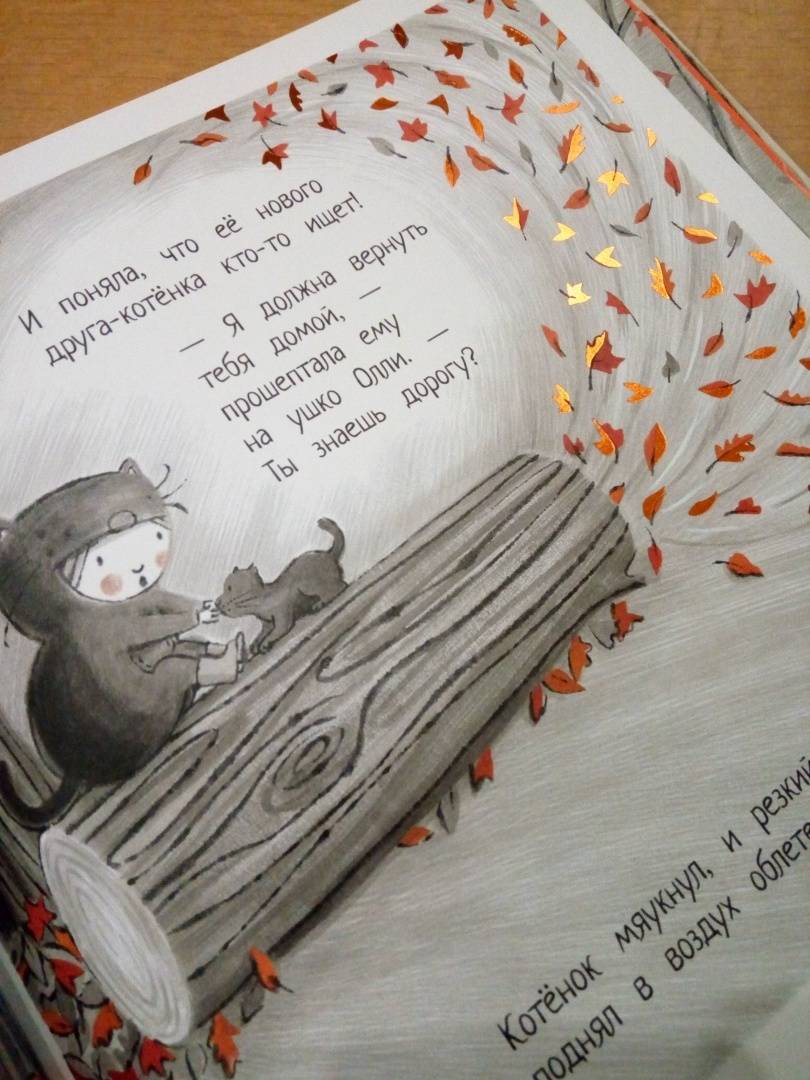 И поняла, что её нового
друга-котёнка кто-то ищет!
— Я должна вернуть
тебя домой, —
прошептала ему
на ушко Олли. —
Ты знаешь дорогу?
Котёнок мяукнул, и
поднял в воздух